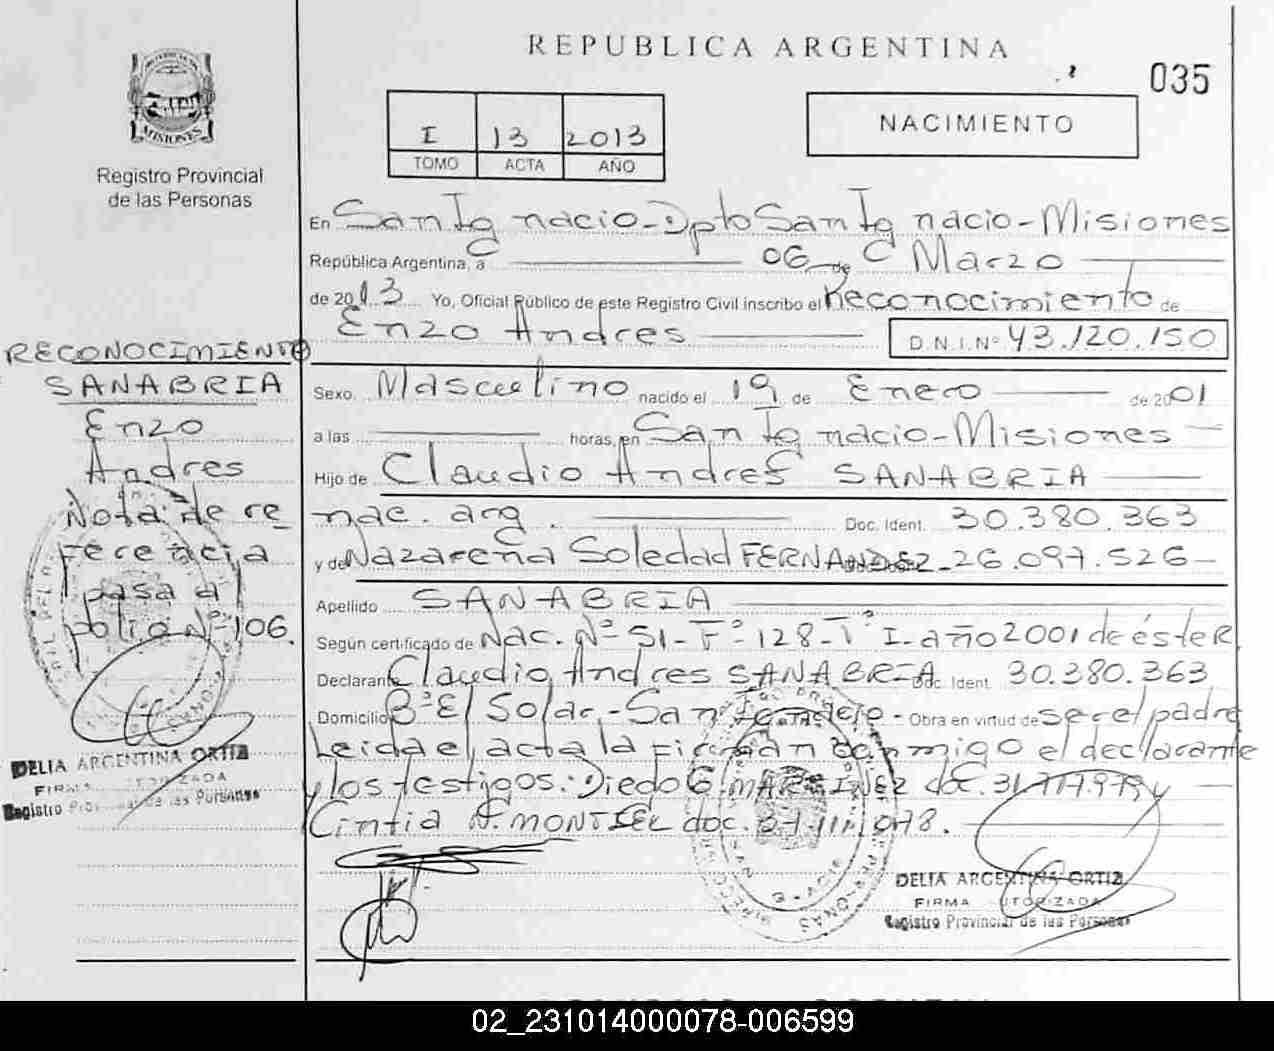 REPUBLICA ARGENTINA
035
MISIONES
Registro Provincial
de las Personas
I 13 2013
TOMO ACTA AÑO
NACIMIENTO
En San Ignacio - Dpto San Ignacio - Misiones
República Argentina, a 06 de Marzo
de 2013 Yo, Oficial Público de este Registro Civil inscribo el Reconocimiento de
Enzo Andres D.N.I. Nº 43.120.150
Sexo Masculino nacido el 19 de Enero de 2001
a las horas, en San Ignacio - Misiones
Hijo de Claudio Andres SANABRIA
nac. arg. Doc. Ident. 30.380.363
y de Nazarena Soledad FERNANDEZ - 26.097.526
Apellido SANABRIA
Según certificado de Nac. Nº 51 - Fº 128 - Tº I - año 2001 de éste R
Declarante Claudio Andres SANABRIA Doc. Ident. 30.380.363
Domicilio Bº El Solar - San Ignacio - Obra en virtud de ser el padre
Leida el acta la firman conmigo el declarante
y los testigos: Diego G. MARTINEZ doc. y
Cintia N. MONTIEL doc.
DELIA ARGENTINA ORTIZ
FIRMA AUTORIZADA
Registro Provincial de las Personas
RECONOCIMIENTO
SANABRIA
Enzo
Andres
Nota de re
ferencia
pasa al
folio Nº 106.
DELIA ARGENTINA ORTIZ
FIRMA AUTORIZADA
Registro Provincial de las Personas
02_231014000078-006599